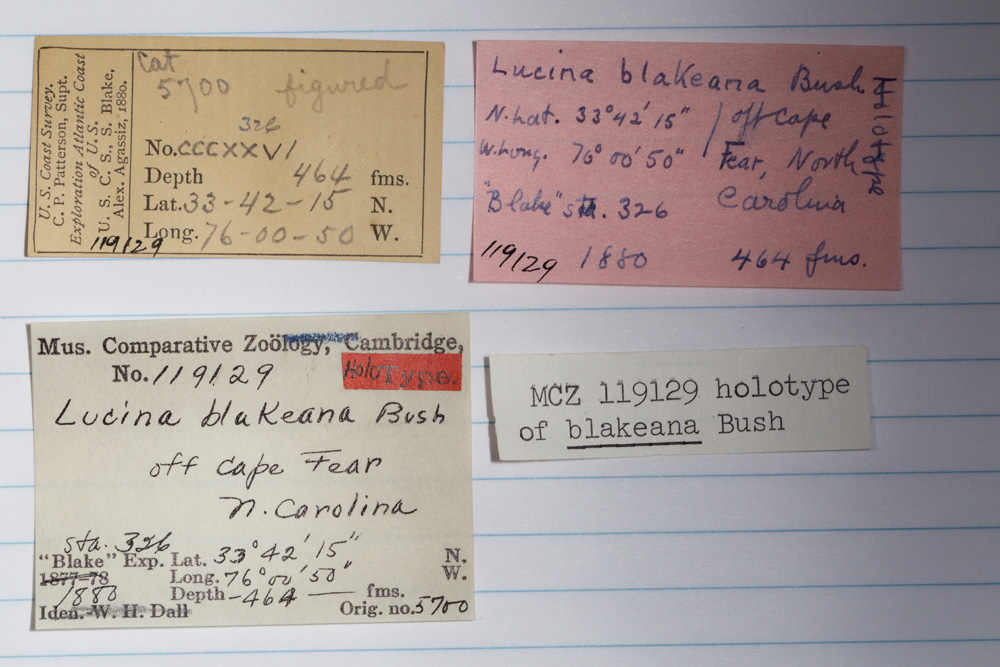 U. S. Coast Survey.
C. P. Patterson, Supt.
Exploration Atlantic Coast
of U. S.
U. S. C. S. S. Blake,
Alex. Agassiz, 1880.
Cat
5700 figured
326
No. CCCXXVI
Depth 464 fms.
Lat. 33-42-15 N.
Long. 76-00-50 W.
119129
Lucina blakeana Bush
Holotype
N. Lat. 33°42'15" / off Cape
W. Long. 76° 00' 50" Fear, North
"Blake" sta. 326 Carolina
119129 1880 464 fms.
Mus. Comparative Zoölogy, Cambridge,
No. 119129 Holo Type.
Lucina blakeana Bush
off Cape Fear
N. Carolina
sta. 326
"Blake" Exp. Lat. 33°42'15" N.
1877-78 Long. 76°00'50" W.
1880 Depth-464 — fms.
Iden.-W. H. Dall Orig. no. 5700
MCZ 119129 holotype
of blakeana Bush